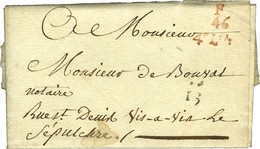 A Monsieur
P
46
Monsieur de Bouvat
notaire
13
Rue st. Denis Vis-a-Vis Le
Sépulchre